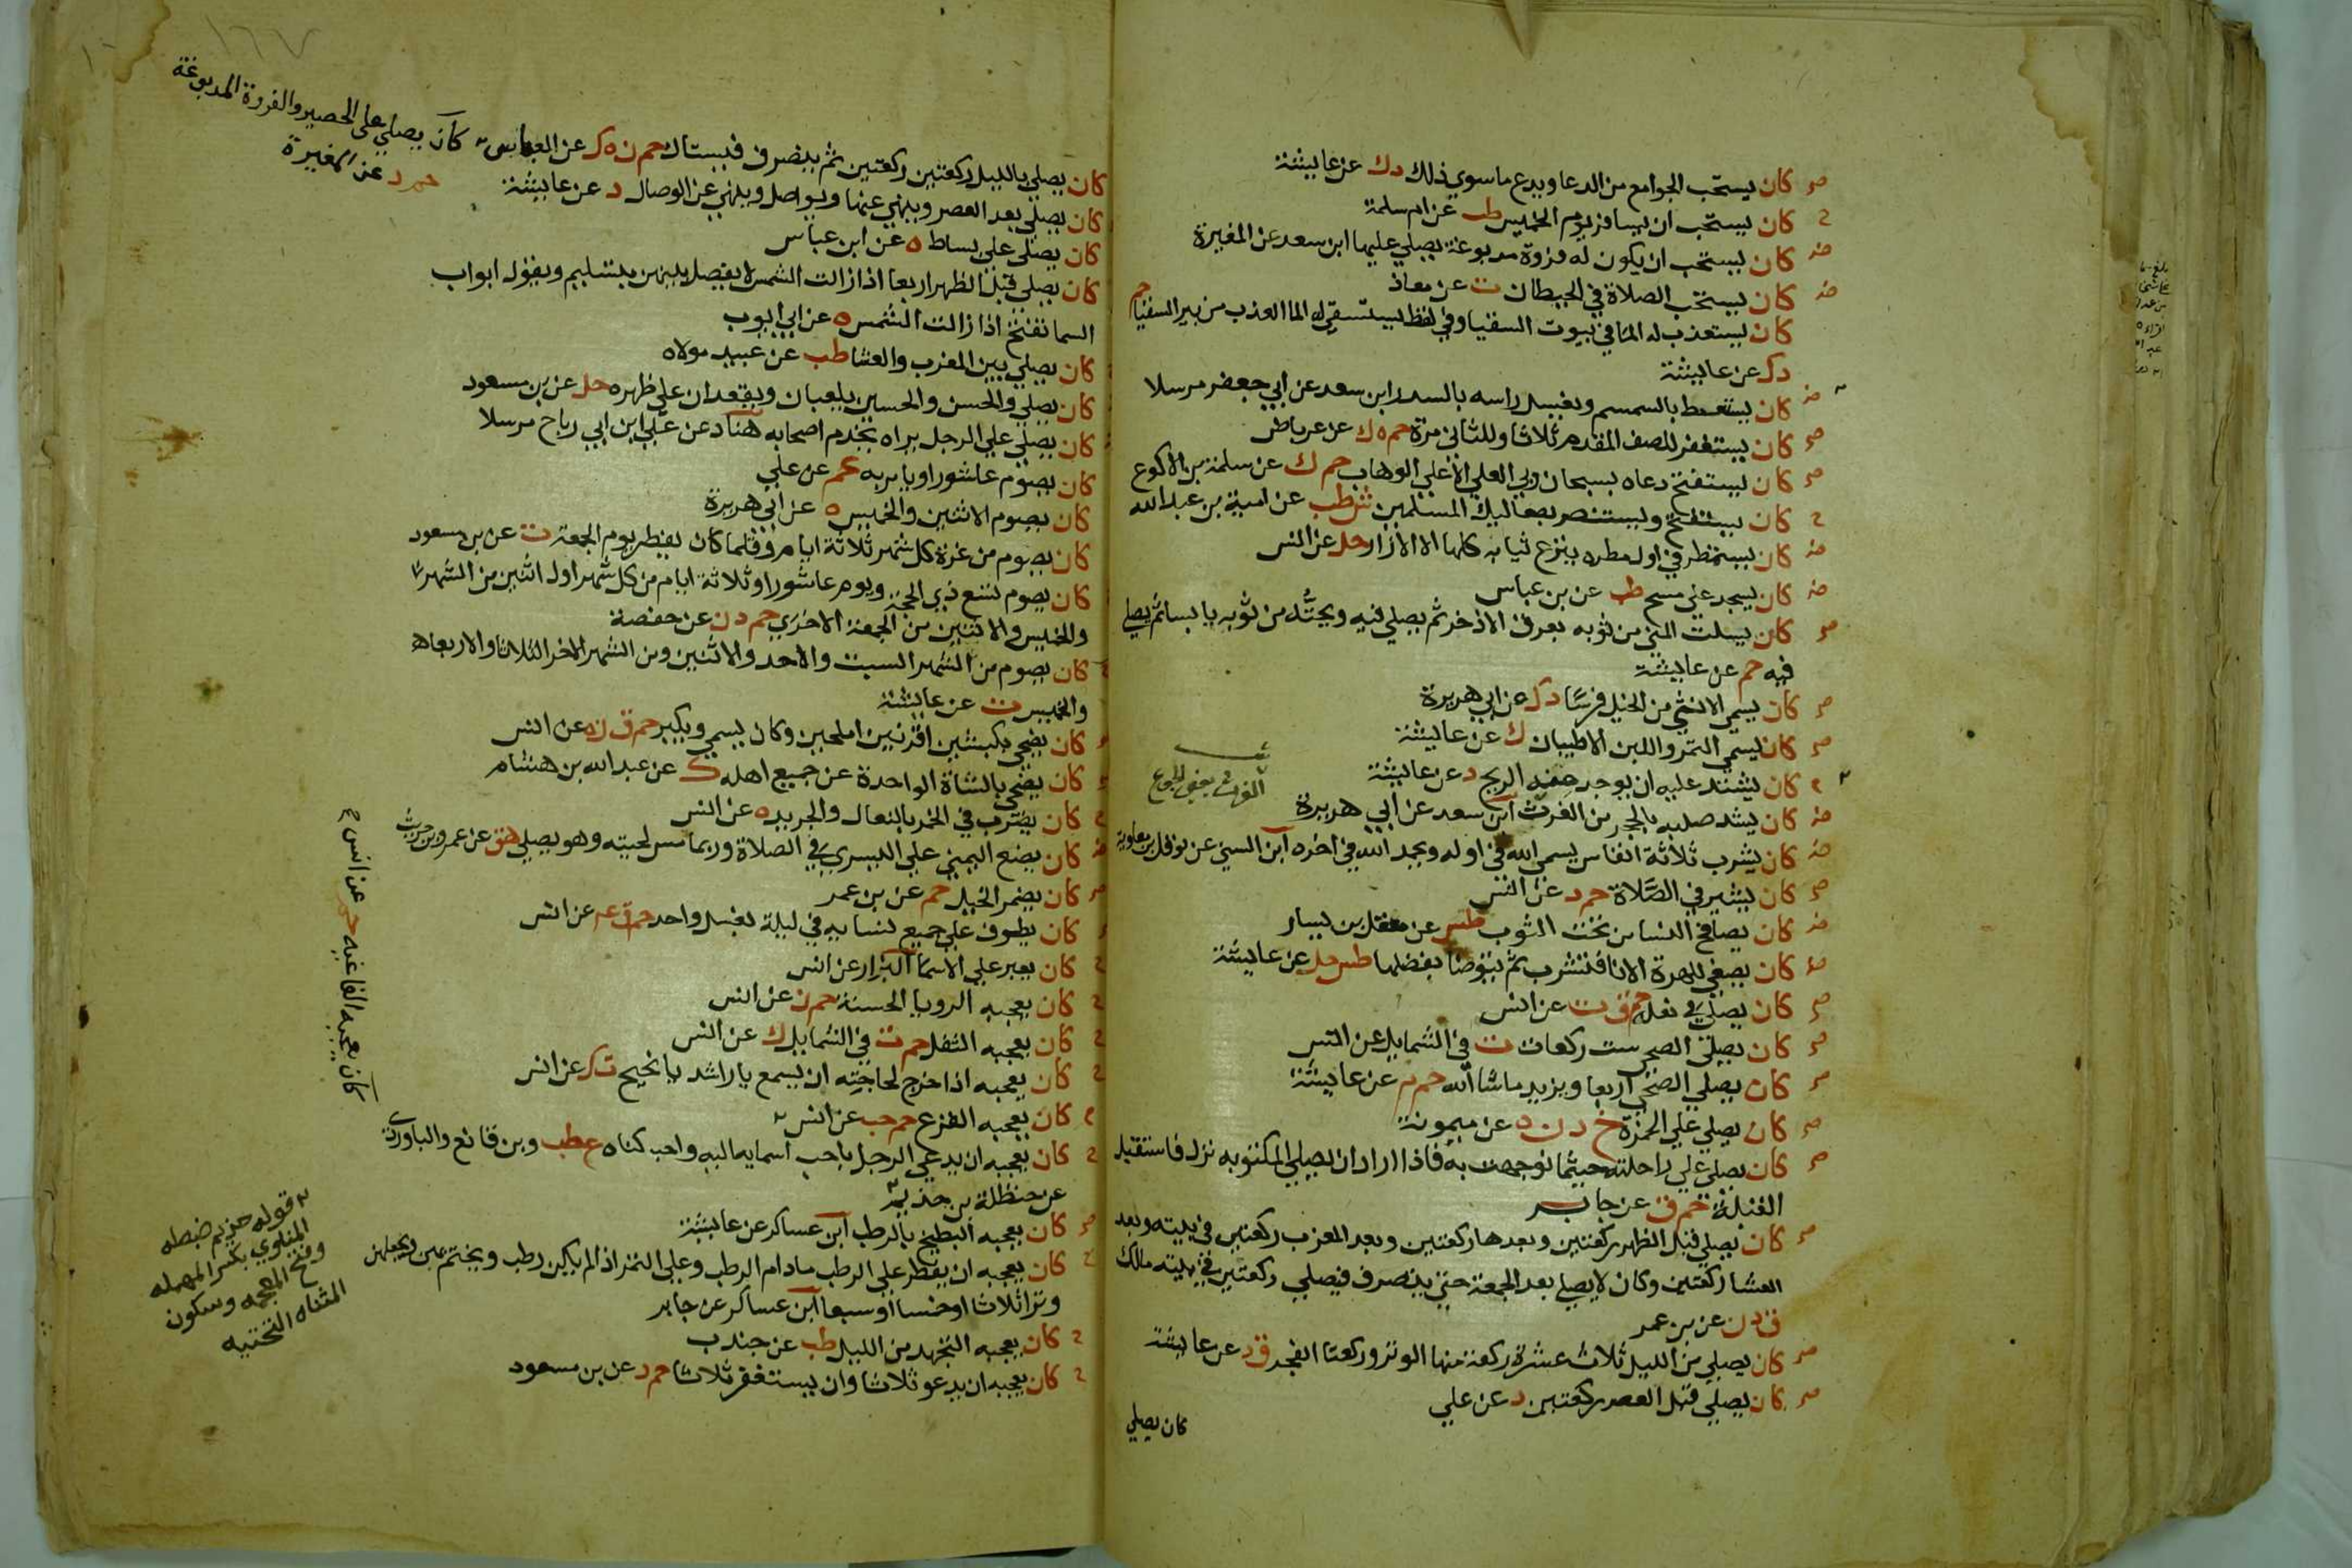 صح كان يستحب الجوامع من الدعا ويدع ما سوي ذلك دك عن عايشة
ح كان يستحب ان يسافر يوم الخميس طب عن ام سلمة
ض كان يستحب ان يكون له فروة مدبوغة يصلي عليها ابن سعد عن المغيرة
ض كان يستحب الصلاة في الحيطان ت عن معاذ
كان يستعذب له الما في بيوت السقيا وفي لفظ يستسقي له الما العذب من بير السقيا حم
دك عن عايشة
ض كان يستعط بالسمسم ويغسل راسه بالسدر ابن سعد عن ابي جعفر مرسلا
صح كان يستغفر للصف المقدم ثلاثا وللثاني مرة حم ه ك عن عرباض
صح كان يستفتح دعاه بسبحان ربي العلي الاعلي الوهاب حم ك عن سلمة بن الاكوع
ح كان يستفتح ويستنصر بصعاليك المسلمين ش طب عن امية بن عبدالله
ض كان يستمطر في اول مطره ينزع ثيابه كلها الا الازار حل عن انس
ض كان يسجد علي مسح طب عن بن عباس
صح كان يسلت المني من ثوبه بعرق الاذخر ثم يصلي فيه ويحته من ثوبه يابسا ثم يصلي
فيه حم عن عايشة
صح كان يسمي الانثي من الخيل فرسا دك عن ابي هريرة
صح كان يسمي التمر واللبن الاطيبان ك عن عايشة
ح كان يشتد عليه ان يوجد منه الريح د عن عايشة
ض كان يشد صلبه بالحجر من الغرث ابن سعد عن ابي هريرة
ض كان يشرب ثلاثة انفاس يسمي الله في اوله ويحمد الله في اخره ابن السني عن نوفل بن معاوية
صح كان يشير في الصلاة حم د عن انس
ض كان يصافح النسا من تحت الثوب طس عن معقل بن يسار
ض كان يصغي للهرة الانا فتشرب ثم يتوضا بفضلها طس حل عن عايشة
صح كان يصلي في نعليه حم ق ت عن انس
صح كان يصلي الضحي ست ركعات ت في الشمايل عن انس
صح كان يصلي الضحي اربعا ويزيد ما شا الله حم م عن عايشة
صح كان يصلي علي الخمرة خ د ن ه عن ميمونة
صح كان يصلي علي راحلته حيثما توجهت به فاذا اراد ان يصلي المكتوبه نزل فاستقبل
القبلة حم ق عن جابر
صح كان يصلي قبل الظهر ركعتين وبعدها ركعتين وبعد المغرب ركعتين في بيته وبعد
العشا ركعتين وكان لا يصلي بعد الجمعة حتي ينصرف فيصلي ركعتين في بيته مالك
ق د ن عن بن عمر
صح كان يصلي من الليل ثلاث عشرة ركعة منها الوتر وركعتا الفجر ق د عن عايشة
صح كان يصلي قبل العصر ركعتين د عن علي
كان يصلي
١٦٧
كان يصلي بالليل ركعتين ركعتين ثم ينصرف فيستاك حم ن ه ك عن العباس
كان يصلي علي الحصير والفروة المدبوغة
حم د عن المغيرة
كان يصلي بعد العصر وينهي عنها ويواصل وينهي عن الوصال د عن عايشة
كان يصلي علي بساط ه عن ابن عباس
كان يصلي قبل الظهر اربعا اذا زالت الشمس لا يفصل بينهن بتسليم ويقول ابواب
السما تفتح اذا زالت الشمس ه عن ابي ايوب
كان يصلي بين المغرب والعشا طب عن عبيد مولاه
كان يصلي والحسن والحسين يلعبان ويقعدان علي ظهره حل عن بن مسعود
كان يصلي علي الرجل يراه يخدم اصحابه هناد عن علي ابن ابي رباح مرسلا
كان يصوم عاشورا ويامر به عم عن علي
كان يصوم الاثنين والخميس ه عن ابي هريرة
كان يصوم من غرة كل شهر ثلاثة ايام وقلما كان يفطر يوم الجمعة ت عن بن مسعود
كان يصوم تسع ذي الحجة ويوم عاشورا وثلاثة ايام من كل شهر اول اثنين من الشهر
والخميس والاثنين من الجمعة الاخري حم د ن عن حفصة
كان يصوم من الشهر السبت والاحد والاثنين ومن الشهر الاخر الثلاثا والاربعاه
والخميس ت عن عايشة
كان يضحي بكبشين اقرنين املحين وكان يسمي ويكبر حم ق ن ه عن انس
كان يضحي بالشاة الواحدة عن جميع اهله ك عن عبد الله بن هشام
كان يضرب في الخمر بالنعال والجريد ه عن انس
كان يضع اليمني علي اليسري في الصلاة وربما مس لحيته وهو يصلي هق عن عمرو بن حريث
كان يضمر الخيل حم عن بن عمر
كان يطوف علي جميع نسايه في ليلة بغسل واحد حم ق عه عن انس
كان يعبر علي الاسما البزار عن انس
كان يعجبه الرويا الحسنة حم ن عن انس
كان يعجبه الثفل حم ت في الشمايل ك عن انس
كان يعجبه اذا خرج لحاجته ان يسمع يا راشد يا نجيح ت ك عن انس
كان يعجبه الفاغيه حم عن انس
كان يعجبه القرع حم حب عن انس
كان يعجبه ان يدعي الرجل باحب اسمايه اليه واحب كناه ع طب وبن قانع والباوردي
عن حنظلة بن حذيم
كان يعجبه البطيخ بالرطب ابن عساكر عن عايشة
كان يعجبه ان يفطر علي الرطب ما دام الرطب وعلي التمر اذا لم يكن رطب ويختم بهن ويجعلهن
وترا ثلاثا او خمسا او سبعا ابن عساكر عن جابر
كان يعجبه التهجد من الليل طب عن جندب
كان يعجبه ان يدعو ثلاثا وان يستغفر ثلاثا حم د عن بن مسعود
قوله حذيم ضبطه
المناوي بكسر المهمله
وفتح المعجمه وسكون
المثناه التحتيه